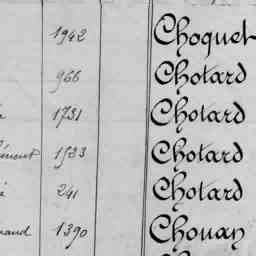 1942 Choquet
966 Chotard
1731 Chotard
1533 Chotard
241 Chotard
1390 Chouan